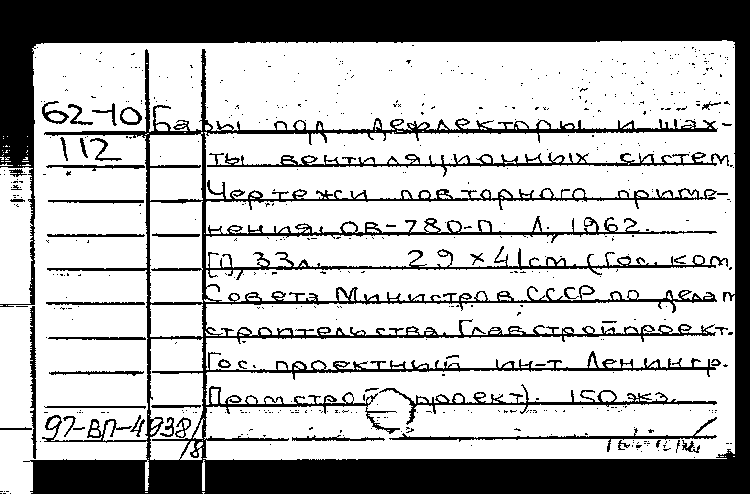 62-10 Базы под дефлекторы и шах-
112 ты вентиляционных систем
Чертежи повторного приме-
нения. ОВ-780-П. Л., 1962.
[1], 33л. 29 × 41 cm. (Гос. ком
Совета Министров СССР по делам
строительства. Главстройпроект.
Гос. проектный ин-т. Ленингр.
Промстройпроект). 150 экз.
97-ВП-4938/8